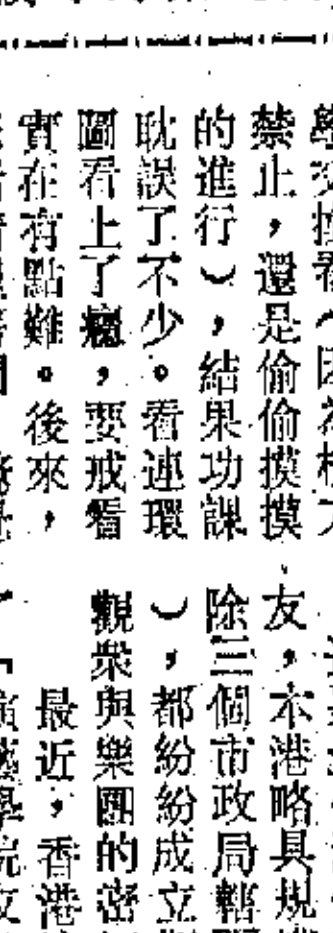 禁止，還是偷偷摸摸
的進行），結果功課
耽誤了不少。看連環
圖看上了癮，要戒看
實在有點難。後來，
友，本港略具規
除三個市政局轄
），都紛紛成立
觀衆與樂團的密
最近，香港